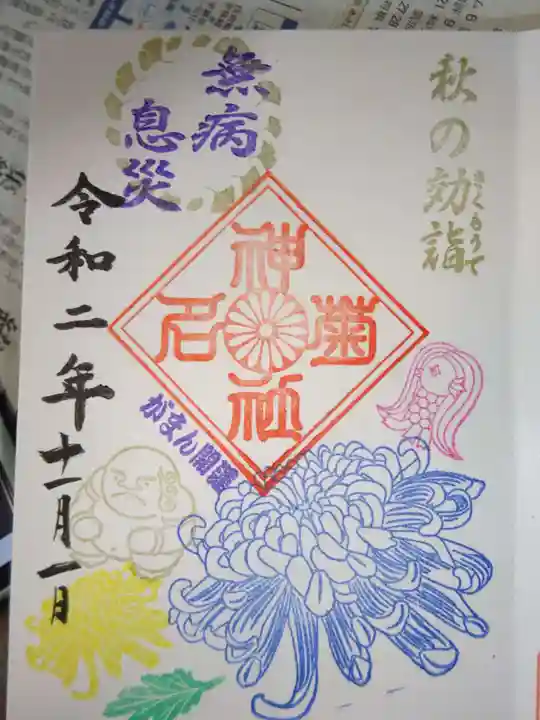 秋の効詣
きくもうで
無病
息災
菊名神社
がまん開運
令和二年十一月一日